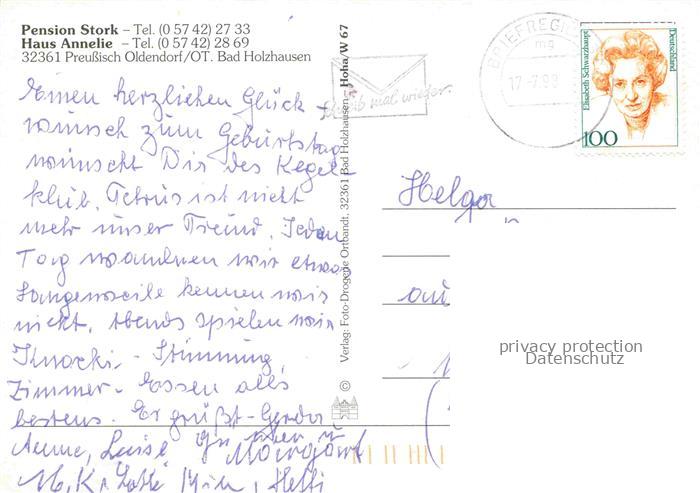 Pension Stork – Tel. (0 57 42) 27 33
Haus Annelie – Tel. (0 57 42) 28 69
32361 Preußisch Oldendorf/OT. Bad Holzhausen
Einen herzlichen Glück
wunsch zum Geburtstag
wünscht Dir des Kegel
klub. Petrus ist nicht
mehr unser Freund. Jeden
Tag wandern wir etwas
Langeweile kennen wir
nicht. Abends spielen wir
Knocki. - Stimmung,
Zimmer - Essen alles
bestens. Er grüßt - Gerda
Aenne, Luise
Margret
Hetti
Verlag: Foto-Drogerie Ortbandt, 32361 Bad Holzhausen Hoha/W 67
©
BRIEFREGION
mg
17.-7.98
Schreib mal wieder.
Elisabeth Schwarzhaupt
Deutschland
100
Helga
privacy protection
Datenschutz